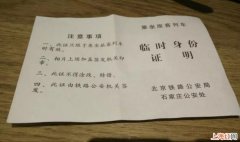 注意事项
一、此证只限于乘坐旅客列车
时有效。
二、相片上须加盖签发机关印
章。
三、此证不得涂改、转借。
四、此证由铁路公安机关签
发。
乘坐旅客列车
临时身份
证明
北京铁路公安局
石家庄公安处